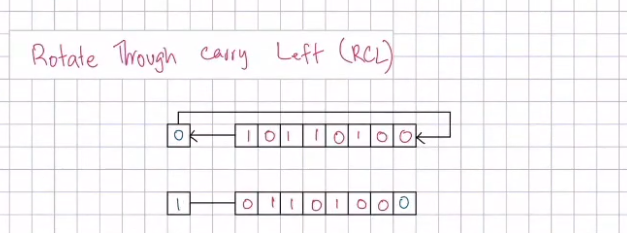 Rotate Through carry Left (RCL)
0 10110100
1 01101000